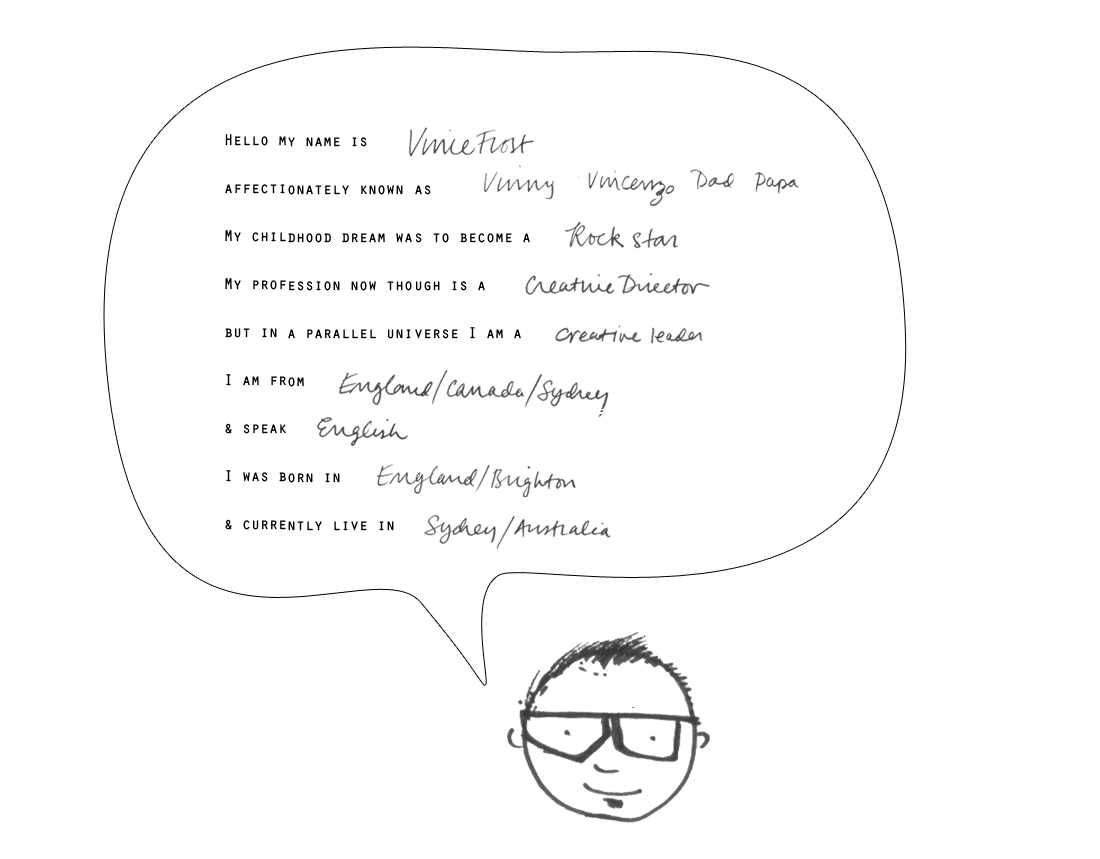 Hello my name is Vince Frost
affectionately known as Vinny Vincenzo Dad Papa
My childhood dream was to become a Rock star
My profession now though is a Creative Director
but in a parallel universe I am a creative leader
I am from England/Canada/Sydney
& speak English
I was born in England/Brighton
& currently live in Sydney/Australia